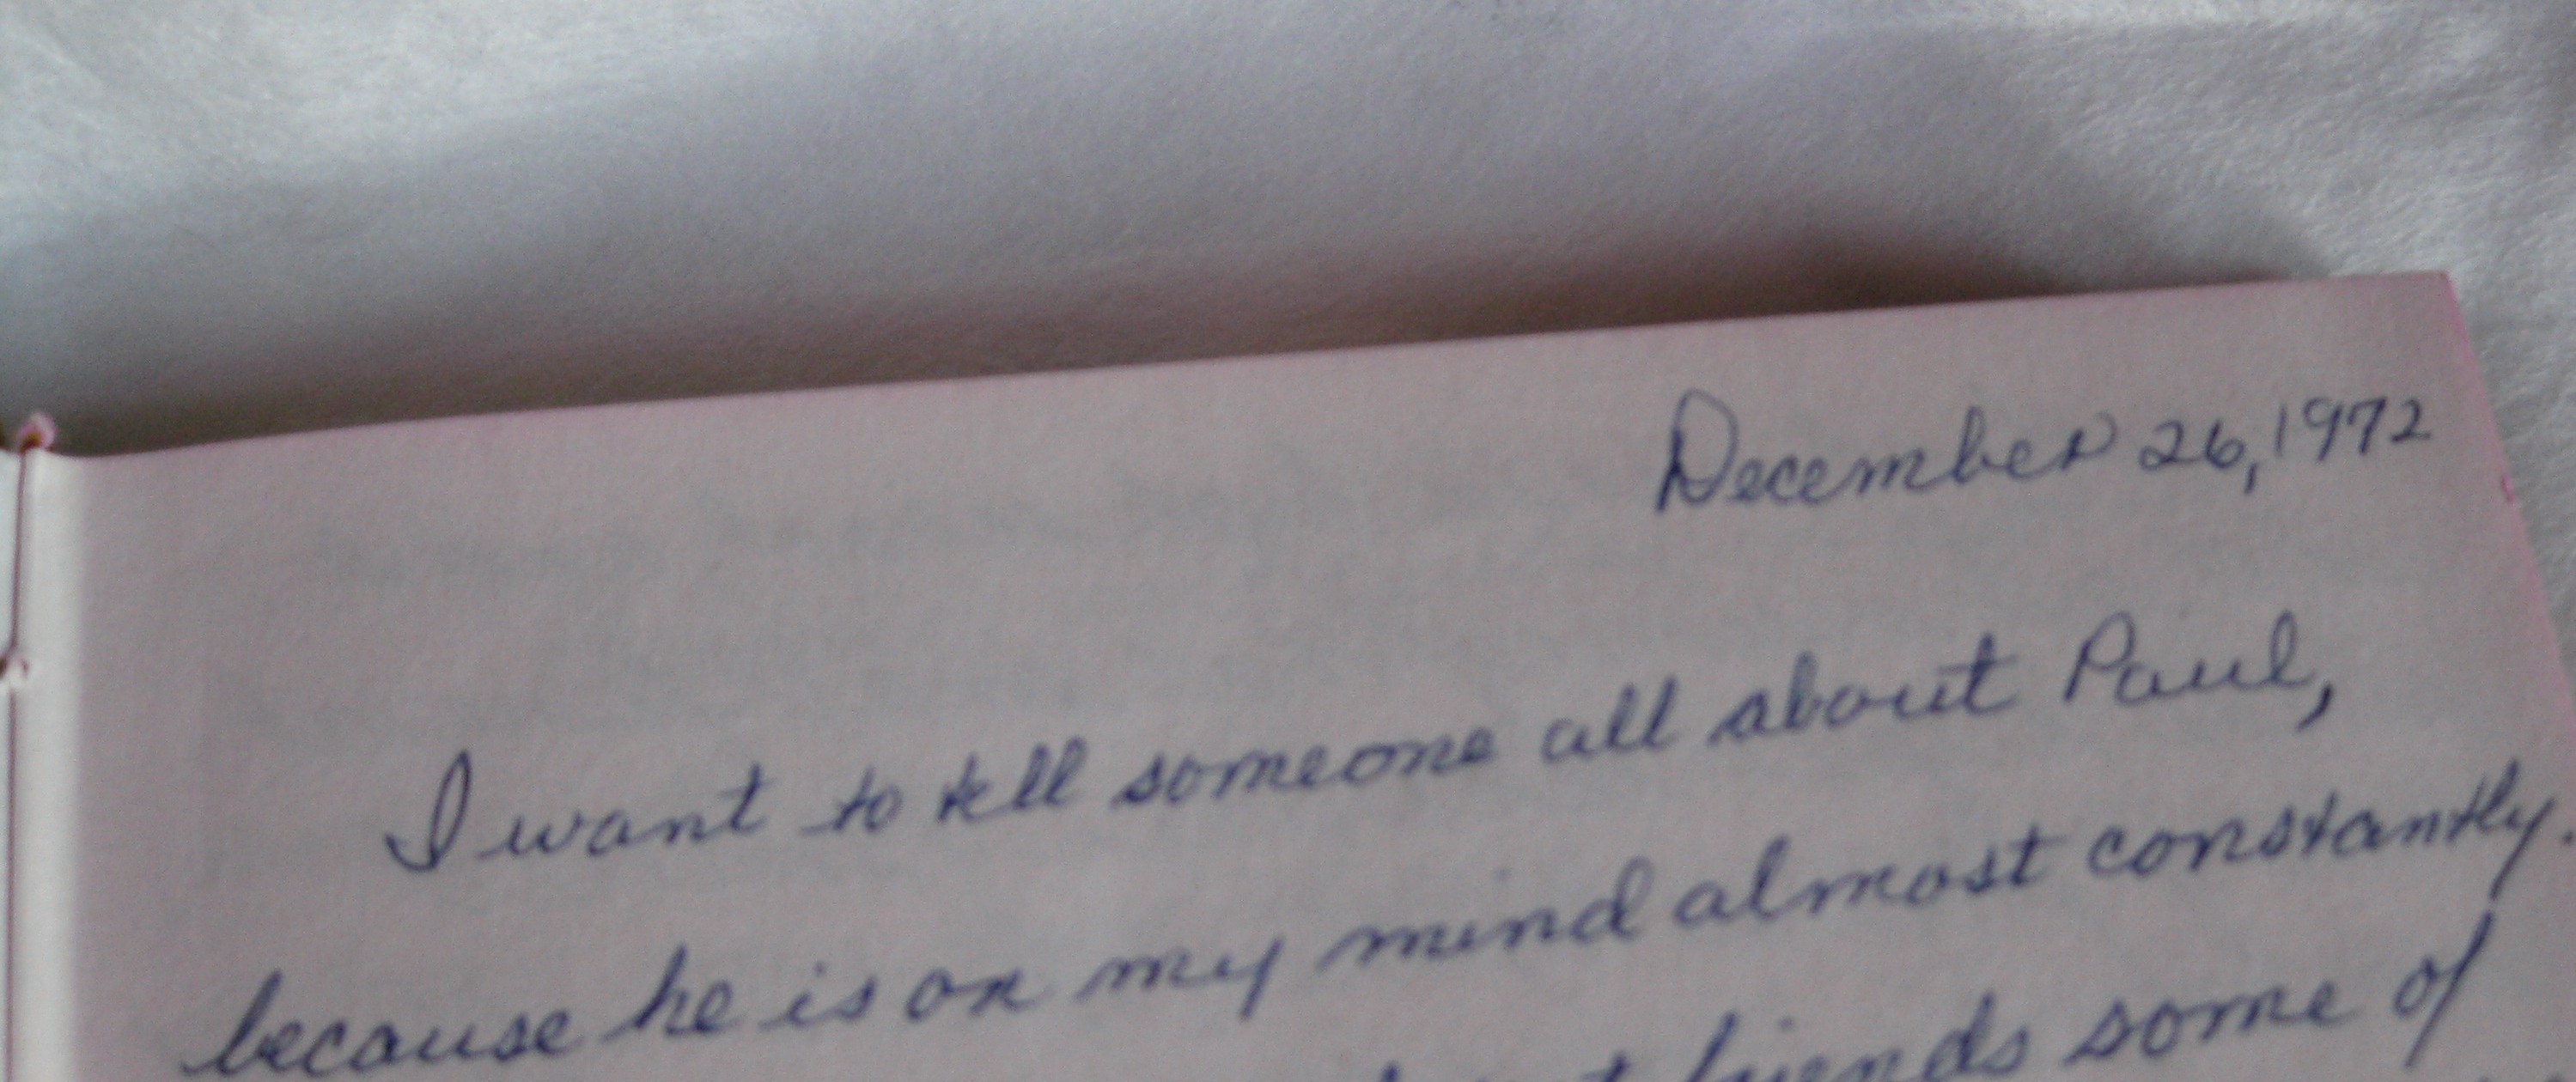 December 26, 1972
I want to tell someone all about Paul,
because he is on my mind almost constantly.
friends some of